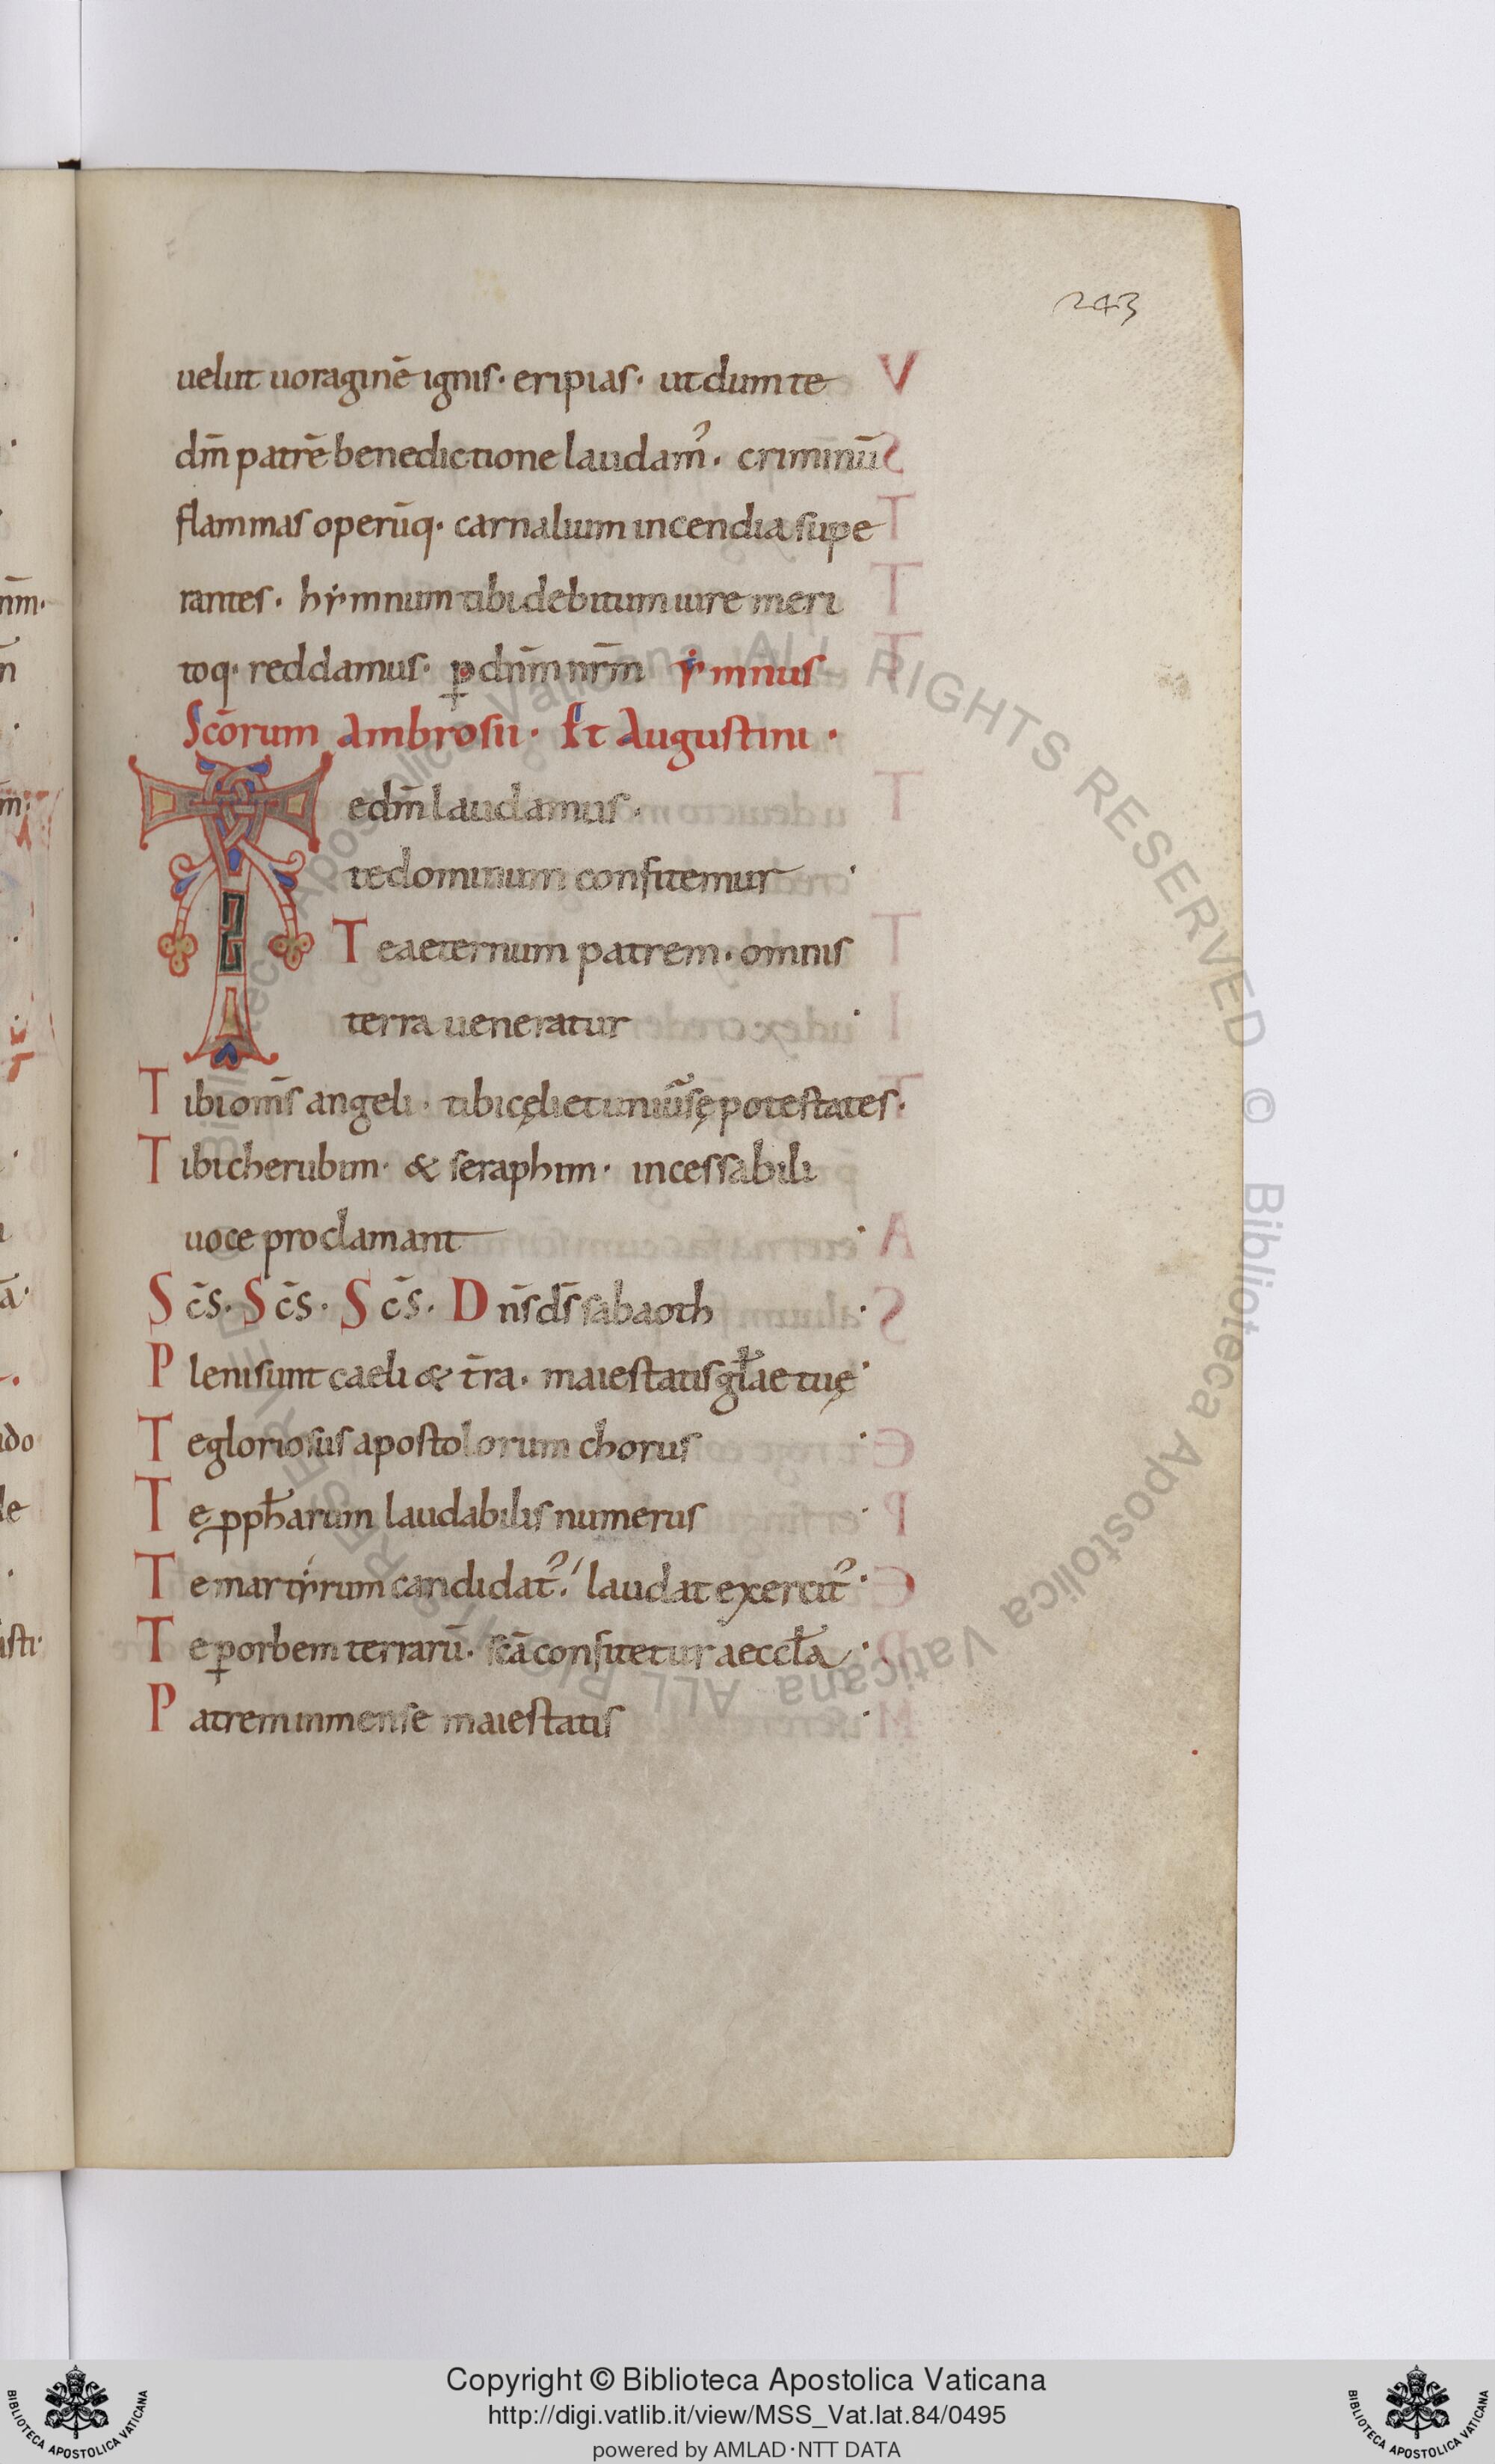 243
uelut uoraginē ignis· eripias· ut dum te
dm̄ patrē benedictione laudam᾿· criminū
flammas operūq· carnalium incendia supe
rantes· hẏmnum tibi debitum iure meri
toq· reddamus· ꝑ dn̄m nr̄m ẏmnus
Scōrum Ambrosii· Et Augustini·
Te dm̄ laudamus·
te dominum confitemur·
Te aeternum patrem· omnis
terra ueneratur·
Tibi om̄s angeli· tibi cęli et uniūsę potestates·
Tibi cherubim· & seraphim· incessabili
uoce proclamant·
Sc̄s· Sc̄s· Sc̄s· Dn̄s ds̄ sabaoth·
Pleni sunt caeli & t̄ra· maiestatis gl̄ae tuę·
Te gloriosus apostolorum chorus·
Te pph̄arum laudabilis numerus·
Te martẏrum candidat᾿· laudat exercit᾿·
Te ꝑ orbem terrarū· scā confitetur aeccl̄a·
Patrem inmense maiestatis·
Copyright © Biblioteca Apostolica Vaticana
http://digi.vatlib.it/view/MSS_Vat.lat.84/0495
powered by AMLAD·NTT DATA
BIBLIOTECA APOSTOLICA VATICANA
BIBLIOTECA APOSTOLICA VATICANA